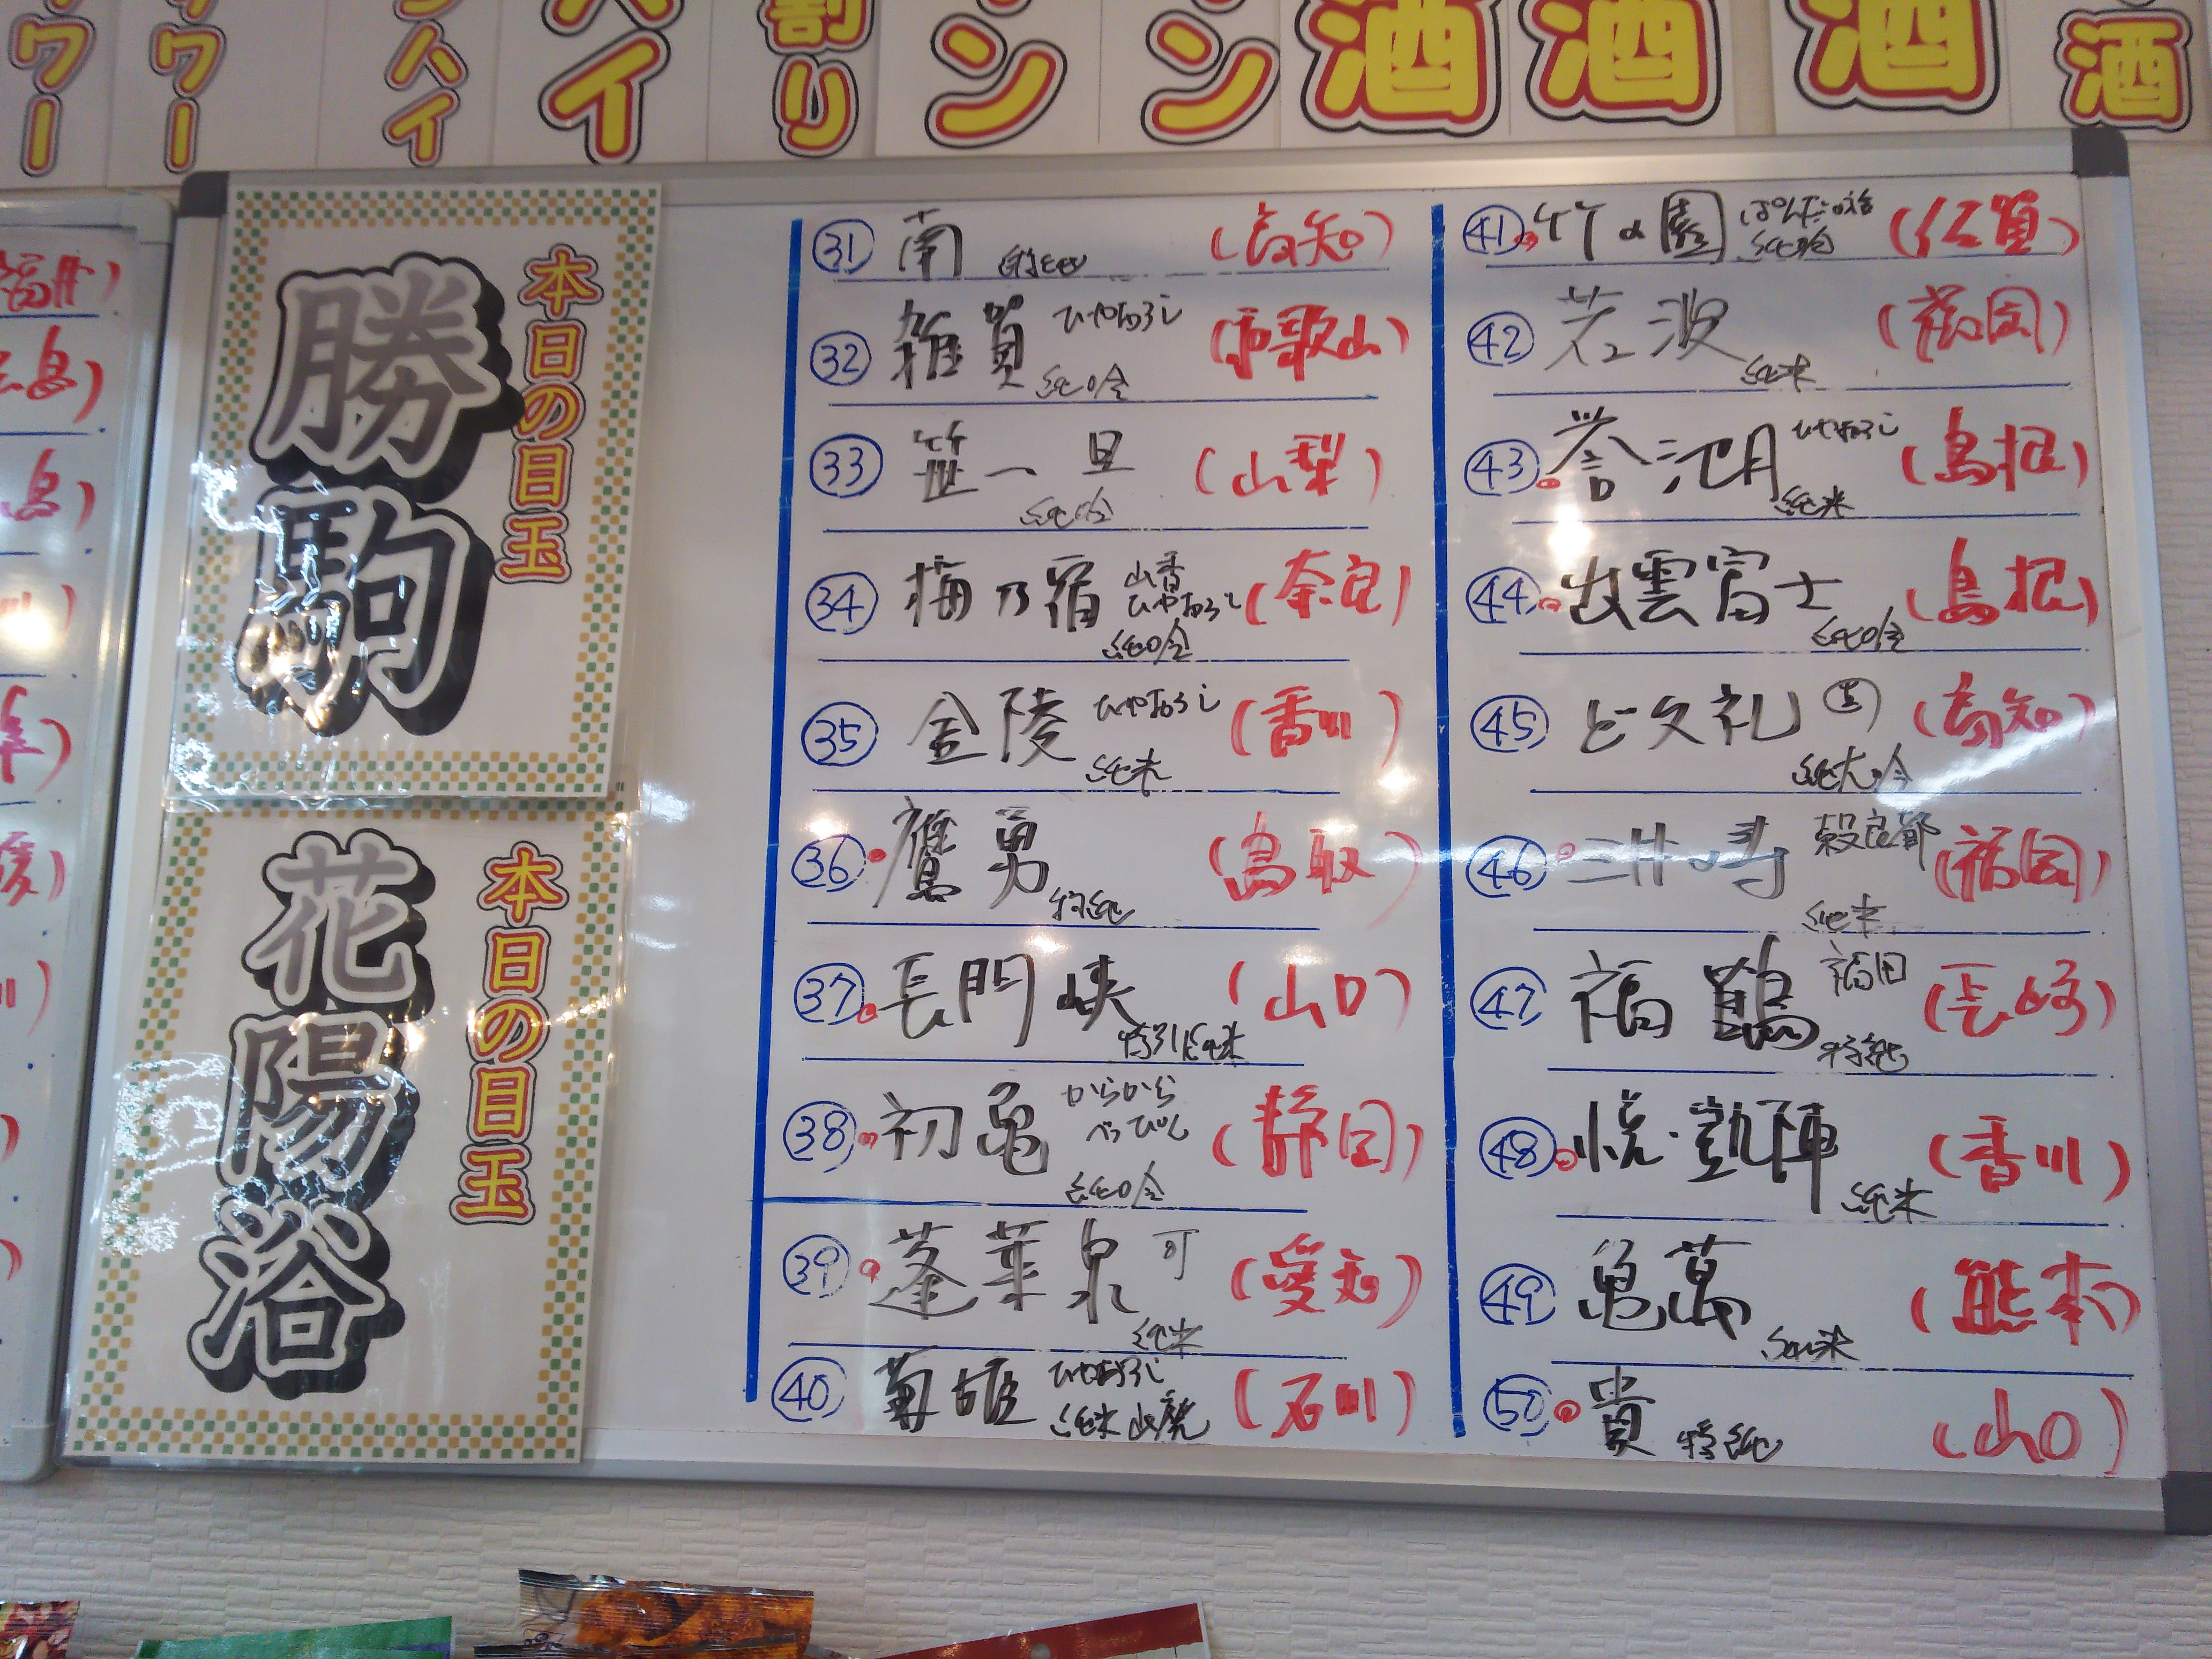 ワー
ワー
ハイ
ハイ
割り
ン
ン
酒
酒
酒
酒
福井)
広島)
島)
川)
川)
本日の目玉
勝駒
本日の目玉
花陽浴
31 南 特純 (高知)
32 雑賀 ひやおろし 純吟 (和歌山)
33 笹一 旦 純吟 (山梨)
34 梅乃宿 山香 ひやおろし 純吟 (奈良)
35 金陵 ひやおろし 純米 (香川)
36 鷹勇 特純 (鳥取)
37 長門峡 特別純米 (山口)
38 初亀 からから べっぴん 純吟 (静岡)
39 蓬莱泉 可 純米 (愛知)
40 菊姫 ひやおろし 純米 山廃 (石川)
41 竹の園 純吟 (佐賀)
42 若波 純米 (福岡)
43 誉池月 ひやおろし 純米 (島根)
44 出雲富士 純吟 (島根)
45 ど久礼 純大吟 (高知)
46 三井の寿 穀良都 純米 (福岡)
47 福鶴 福田 特純 (長崎)
48 悦・凱陣 純米 (香川)
49 亀萬 純米 (熊本)
50 貴 特純 (山口)